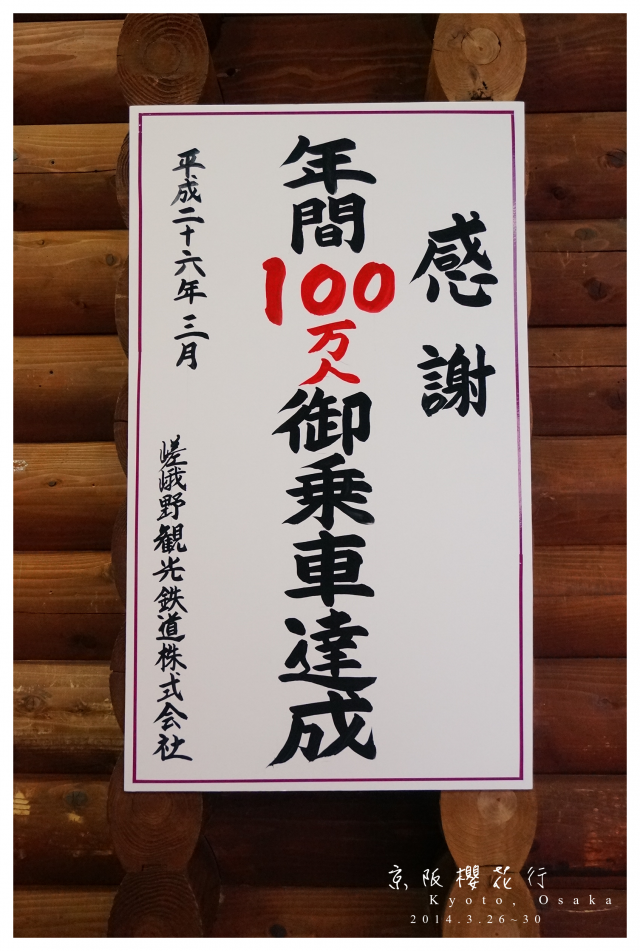 感謝
年間100万人御乗車達成
平成二十六年三月
嵯峨野観光鉄道株式会社
京阪櫻花行
Kyoto, Osaka
2014.3.26~30